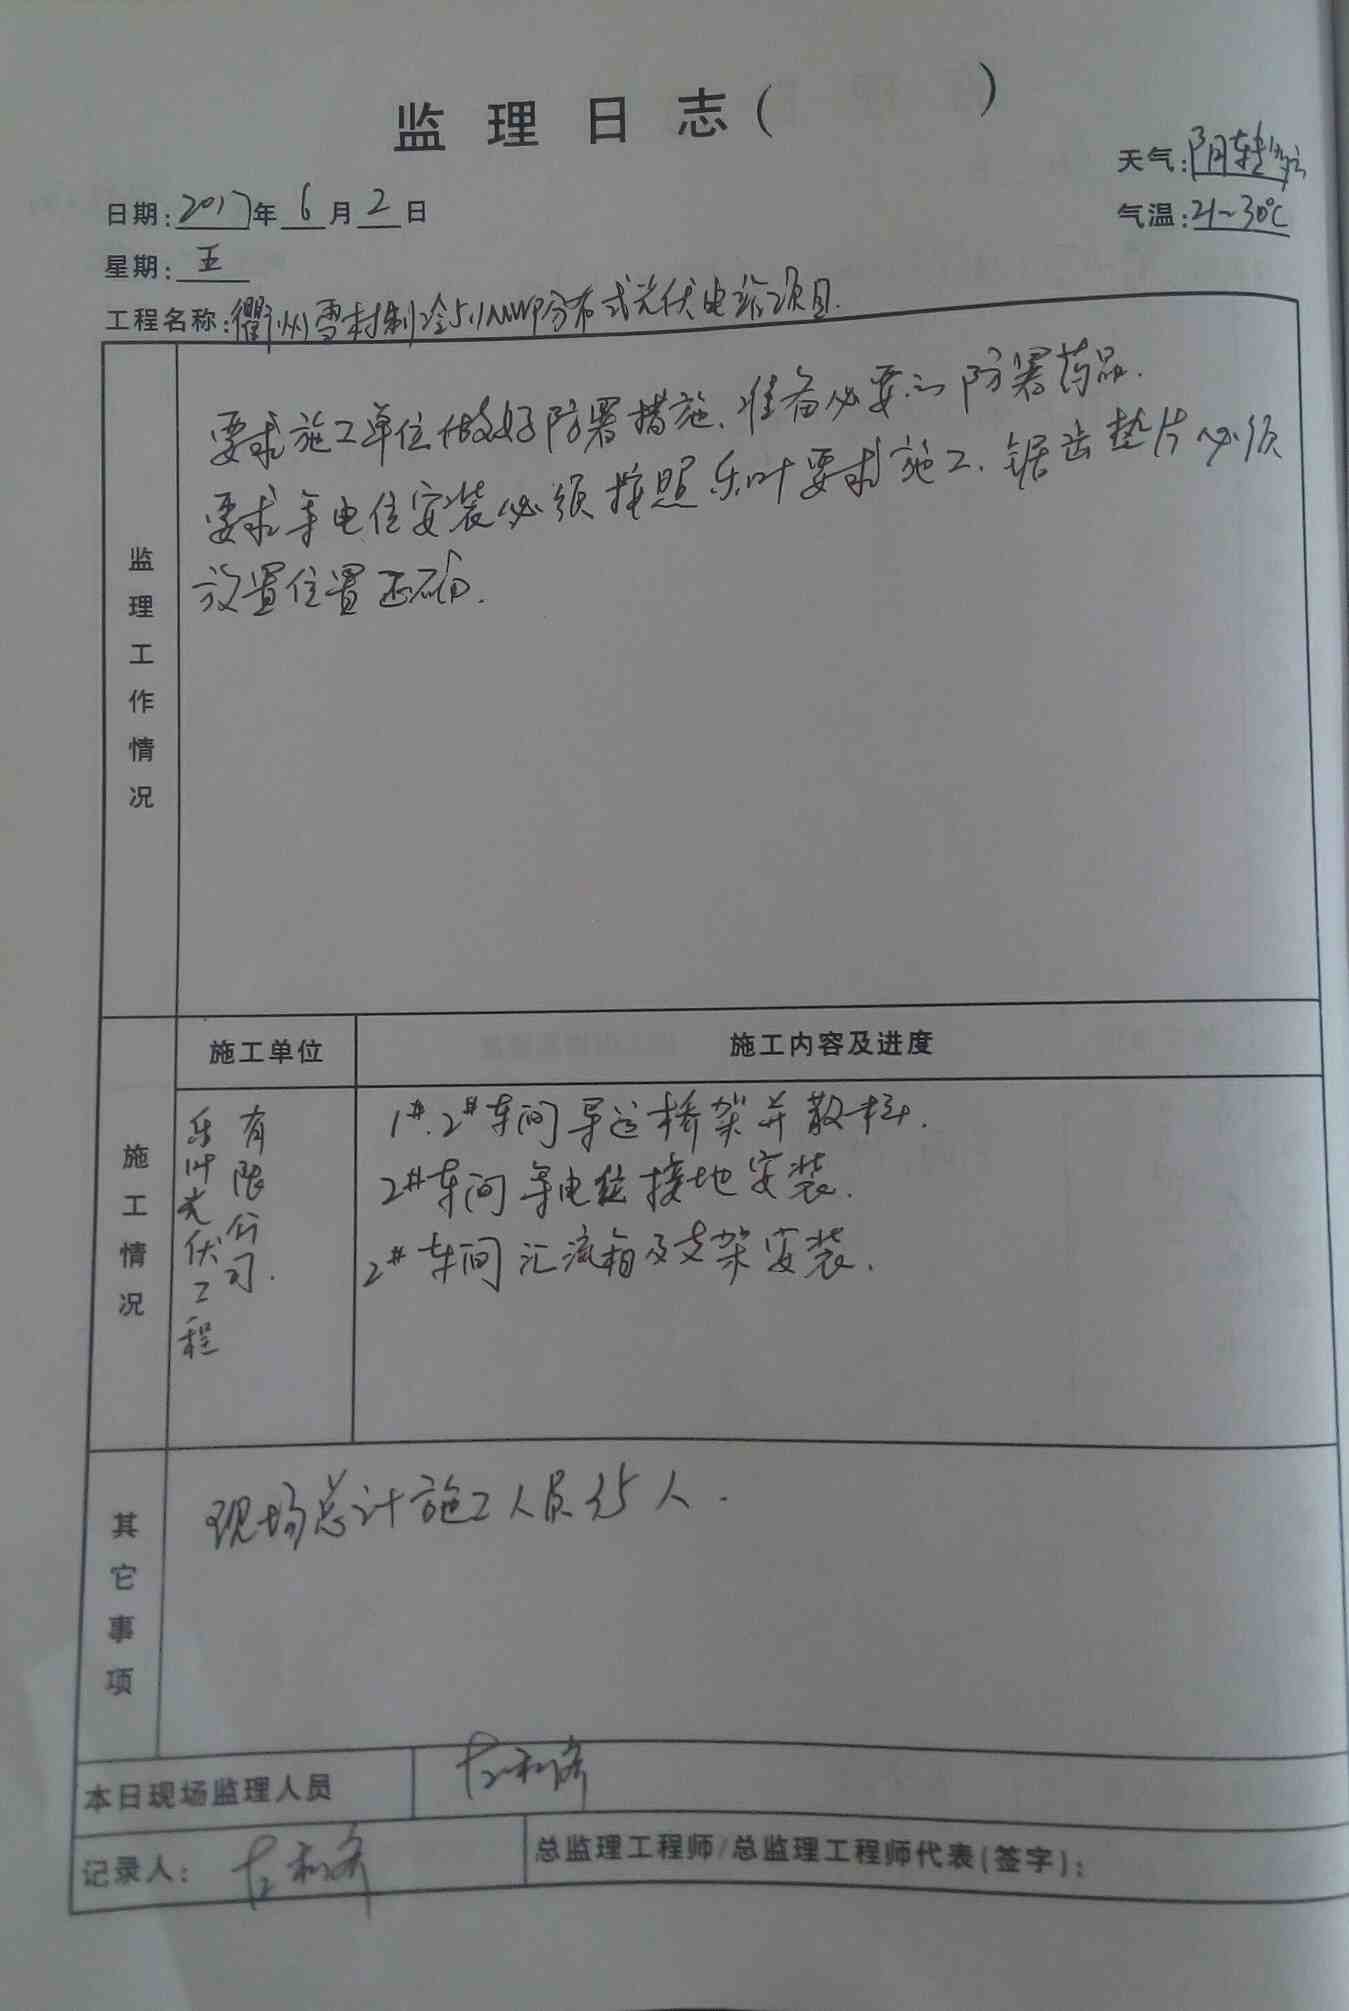 监理日志（ ）
天气：阴转
日期：2017年6月2日
气温：21~30℃
星期：五
工程名称：衢州雪村制冷5.1MWP分布式光伏电站项目.
监理工作情况
要求施工单位做好防署措施、准备必要的防署药品.
要求等电位安装必须按照乐叶要求施工、锯齿垫片必须
放置位置正确.
施工单位
施工内容及进度
施工情况
乐叶光伏工程
有限公司.
1#.2#车间导运桥架并散栓.
2#车间等电位接地安装.
2#车间汇流箱及支架安装.
其它事项
现场总计施工人员35人.
本日现场监理人员
记录人：
总监理工程师/总监理工程师代表(签字)：